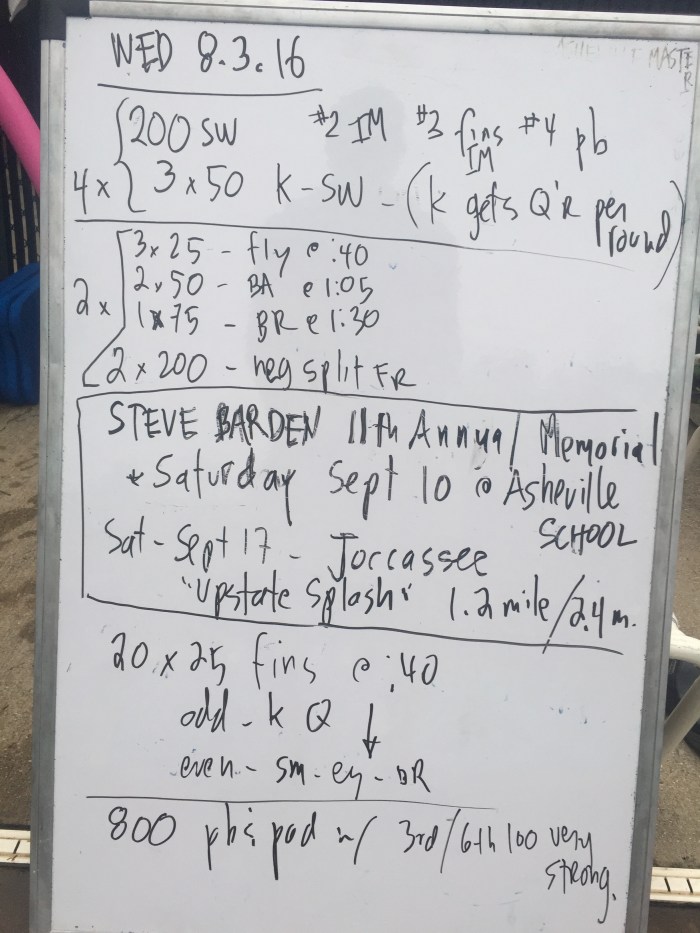 ASHEVILLE MASTER
WED 8.3.16
200 SW #2 IM #3 fins IM #4 pb
4x 3x50 K-SW - (K gets Q'R per round)
3x25 - fly @ :40
2x 2x50 - BA @ 1:05
1x75 - BR @ 1:30
2x200 - neg split FR
STEVE BARDEN 11th Annual Memorial
* Saturday Sept 10 @ Asheville
SCHOOL
Sat - Sept 17 - Joccassee
"Upstate Splash" 1.2 mile/2.4 m.
20 x 25 fins @ :40
odd - K Q ↓
even - sm - ey - DR
800 pb: pad w/ 3rd/6th 100 very
strong.